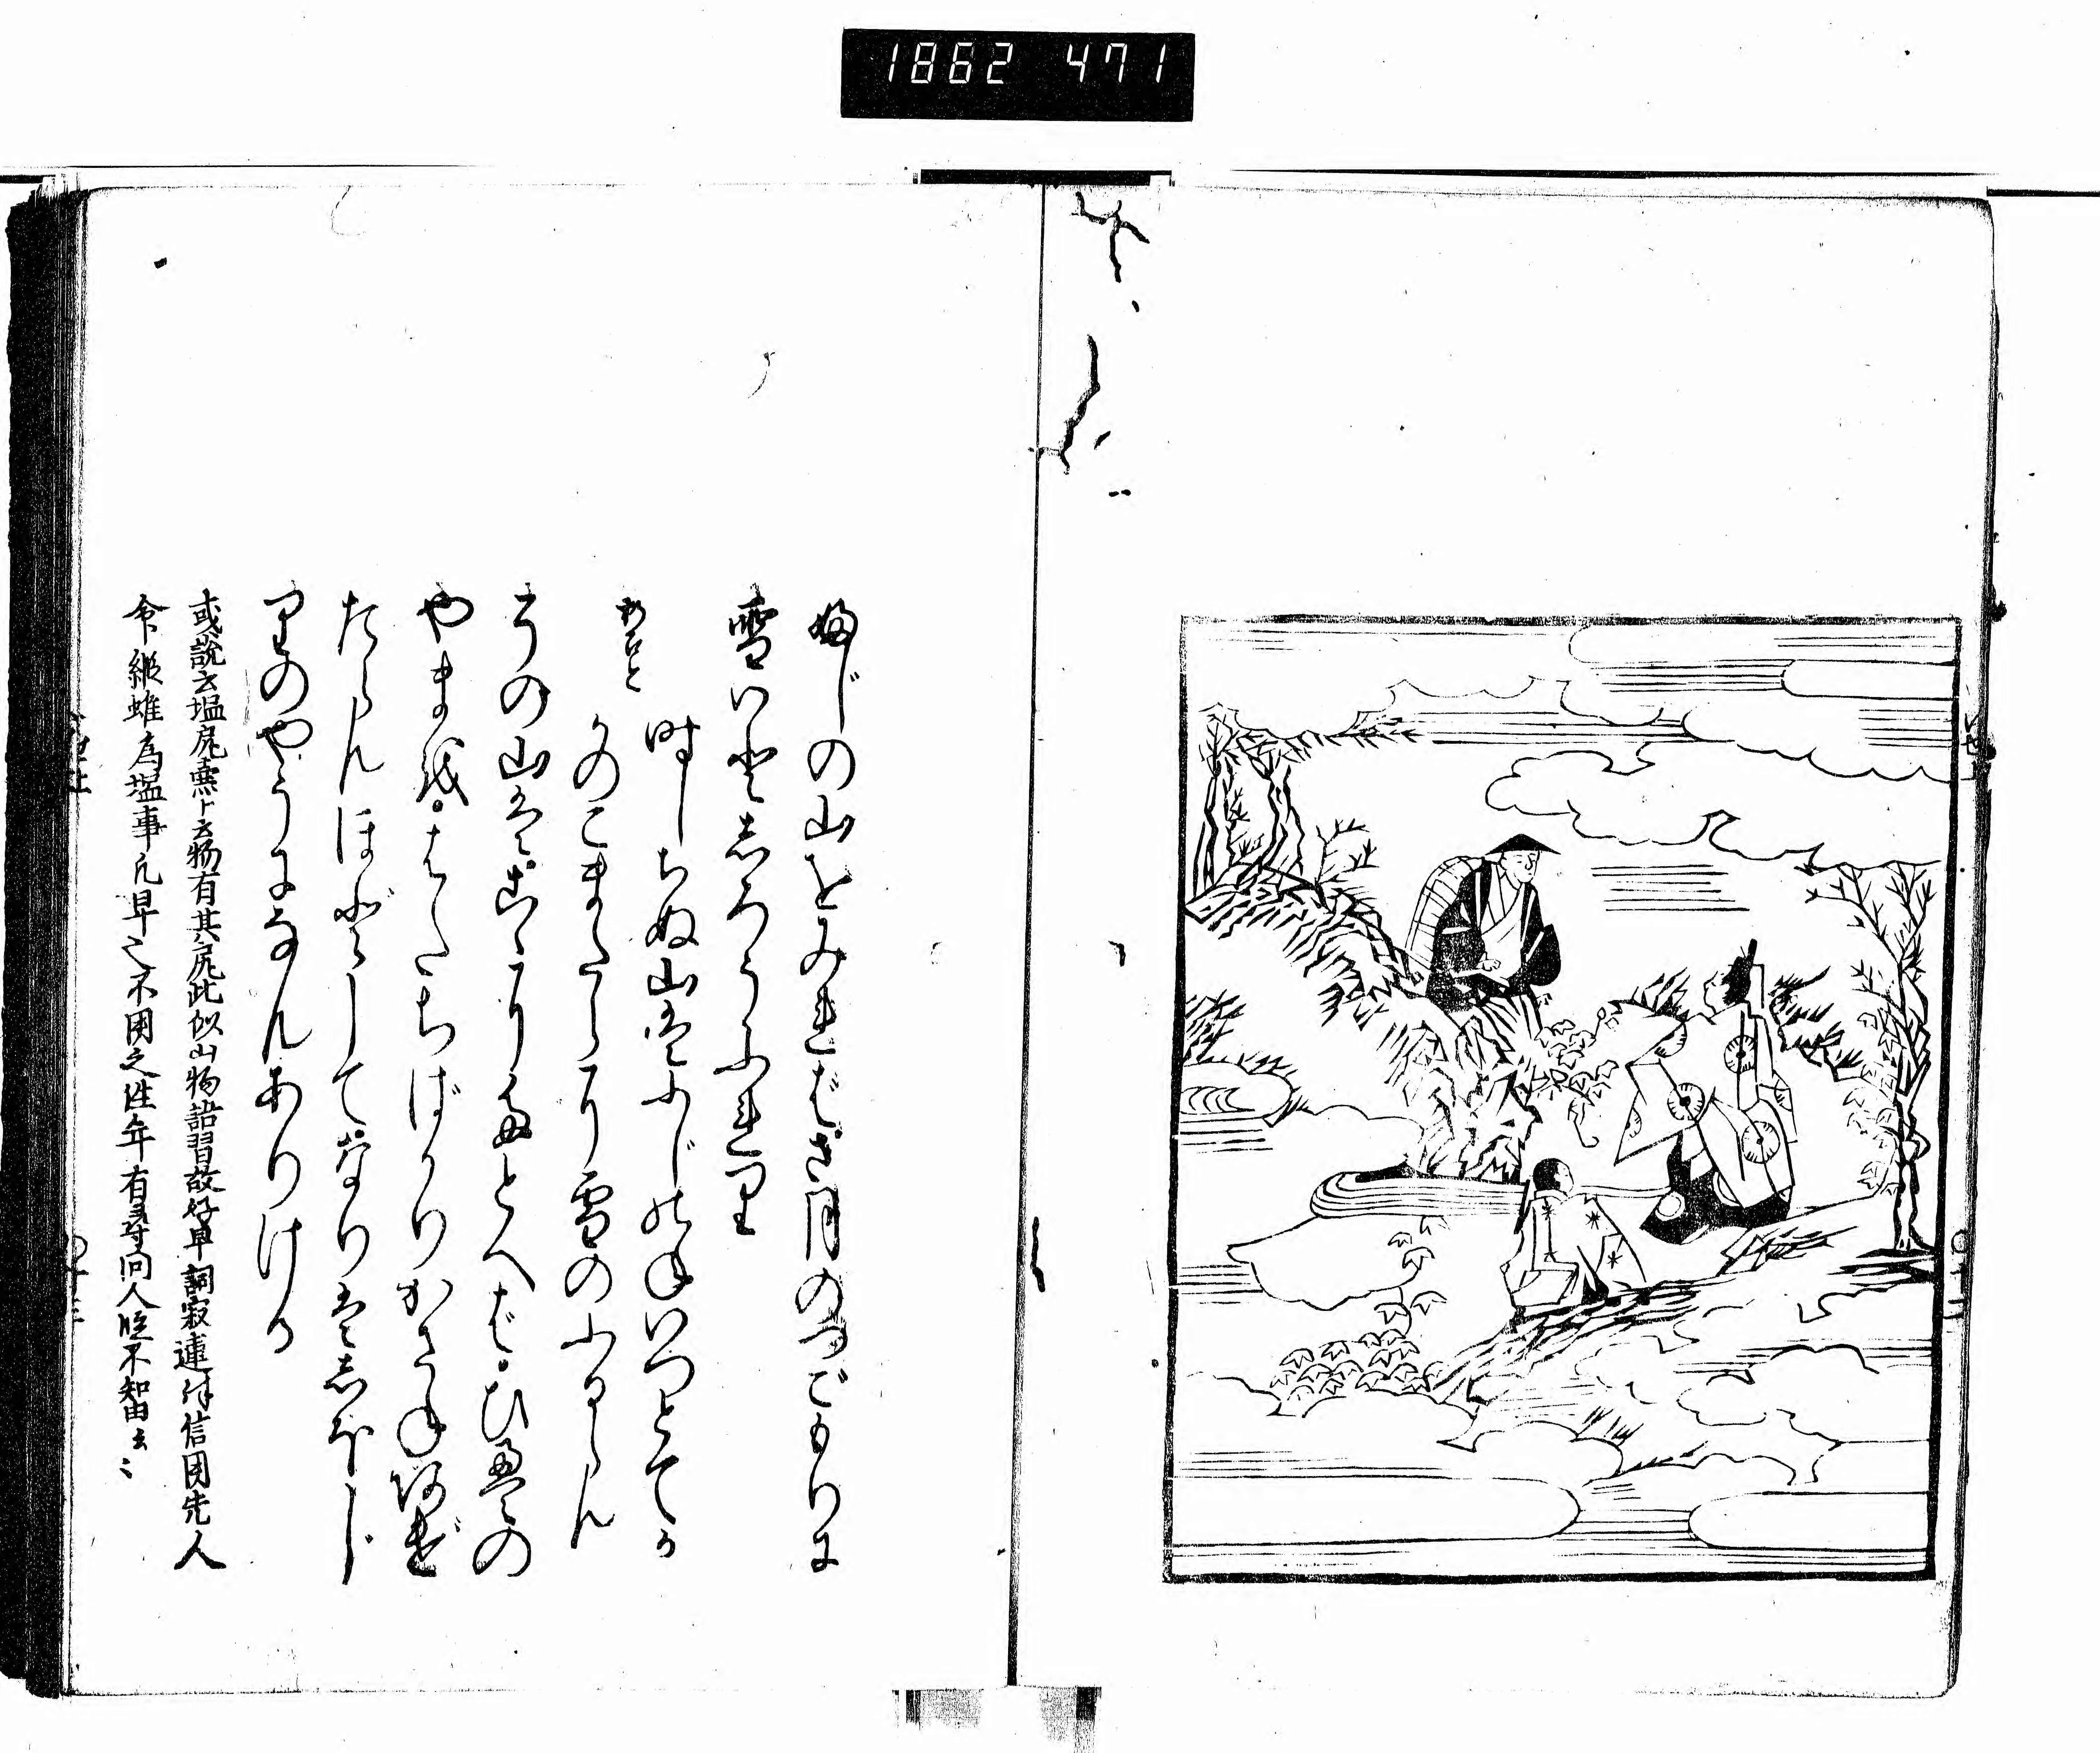 1862 471
婦じの山をみればさ月のつごもりに
雪いとしろうふれり
時しらぬ山はふじのねいつとてか
新古今
かのこまだらに雪のふるらん
その山はこゝにたとへばひえの
やまを。はたちばかりかさねあげ
たらんほどしてなりはしほじ
りのやうになんありける
或説云塩尻
物有其尻此似山物語習故好卑詞寂蓮
信用先人
命縦雖為塩事凡卑之不用之往年有尋問人
不知由云〻